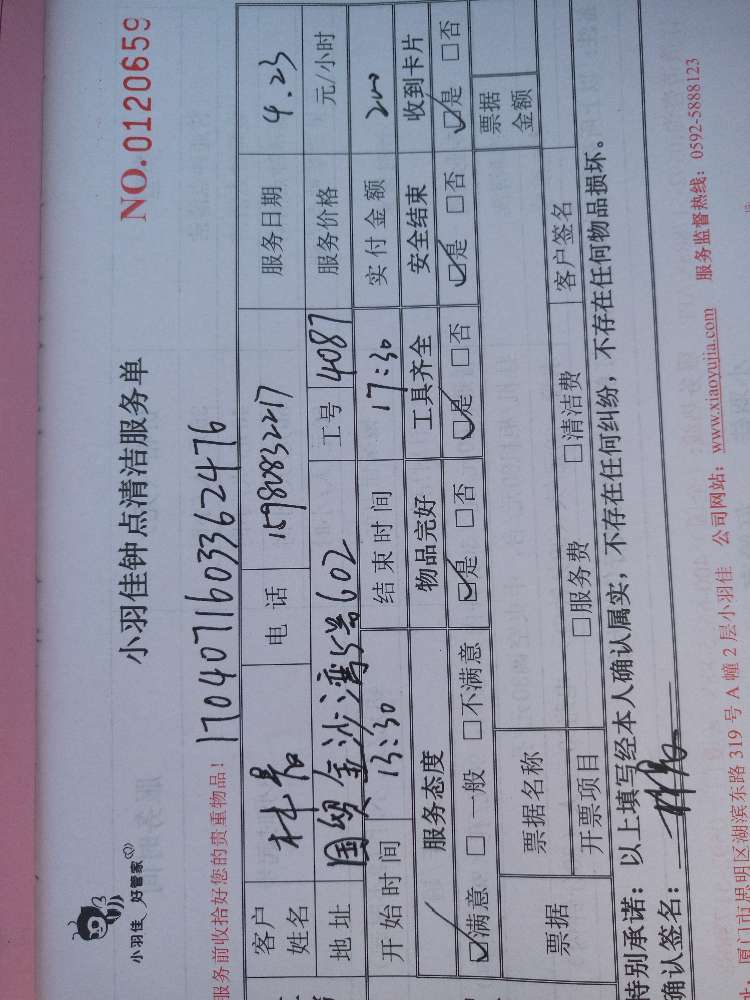 小羽佳 好管家
小羽佳钟点清洁服务单
NO.0120659
服务前收拾好您的贵重物品！
1704071603362476
客户姓名 电话 15980832217 服务日期 4.23
地址 国贸金沙湾5号602 工号 4087 服务价格 元/小时
开始时间 13:30 结束时间 17:30 实付金额 200
服务态度 物品完好 工具齐全 安全结束 收到卡片
☑满意 □一般 □不满意 ☑是 □否 ☑是 □否 ☑是 □否 ☑是 □否
票据 票据名称 票据金额
开票项目 □服务费 □清洁费 客户签名
特别承诺：以上填写经本人确认属实，不存在任何纠纷，不存在任何物品损坏。
确认签名：
厦门市思明区湖滨东路 319 号 A 幢 2 层小羽佳 公司网站：www.xiaoyujia.com 服务监督热线：0592-5888123